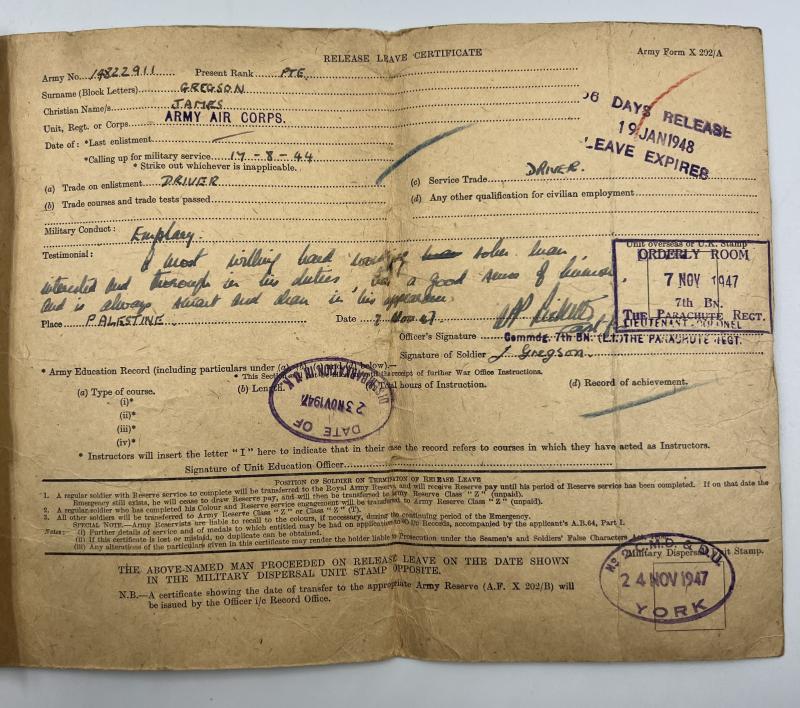 RELEASE LEAVE CERTIFICATE
Army Form X 292/A
Army No. 14822911 Present Rank PTE.
Surname (Block Letters) GREGSON
Christian Name/s JAMES
Unit, Regt. or Corps ARMY AIR CORPS.
56 DAYS RELEASE
19 JAN 1948
LEAVE EXPIRES
Date of : *Last enlistment
*Calling up for military service 17-8-44
* Strike out whichever is inapplicable.
(a) Trade on enlistment DRIVER
(c) Service Trade DRIVER.
(b) Trade courses and trade tests passed
(d) Any other qualification for civilian employment
Military Conduct : Exemplary.
Testimonial: A most willing hard working sober man
interested and thorough in his duties, has a good sense of humour
and is always smart and clean in his appearance.
Unit overseas or U.K. Stamp
ORDERLY ROOM
7 NOV 1947
7th BN.
THE PARACHUTE REGT.
Place PALESTINE. Date 7 Nov 47
LIEUTENANT-COLONEL
Officer's Signature
Commdg. 7th BN. (L.I.) THE PARACHUTE REGT.
Signature of Soldier J Gregson.
* Army Education Record (including particulars under (a), (b), (c) and (d) below).—
* This Section receipt of further War Office Instructions.
(a) Type of course. (b) Length Total hours of Instruction. (d) Record of achievement.
(i)*
(ii)*
(iii)*
(iv)*
DATE OF
23 NOV 1947
DISEMBARKATION IN U.K.
* Instructors will insert the letter "I" here to indicate that in their case the record refers to courses in which they have acted as Instructors.
Signature of Unit Education Officer
POSITION OF SOLDIER ON TERMINATION OF RELEASE LEAVE
1. A regular soldier with Reserve service to complete will be transferred to the Royal Army Reserve, and will receive Reserve pay until his period of Reserve service has been completed. If on that date the
Emergency still exists, he will cease to draw Reserve pay, and will then be transferred to Army Reserve Class "Z" (unpaid).
2. A regular soldier who has completed his Colour and Reserve service engagement will be transferred to Army Reserve Class "Z" (unpaid).
3. All other soldiers will be transferred to Army Reserve Class "Z" or Class "Z" (T).
SPECIAL NOTE.—Army Reservists are liable to recall to the colours, if necessary, during the continuing period of the Emergency.
Notes : (i) Further details of service and of medals to which entitled may be had on application to Records, accompanied by the applicant's A.B.64, Part I.
(ii) If this certificate is lost or mislaid, no duplicate can be obtained.
(iii) Any alterations of the particulars given in this certificate may render the holder liable to Prosecution under the Seamen's and Soldiers' False Characters Act
THE ABOVE-NAMED MAN PROCEEDED ON RELEASE LEAVE ON THE DATE SHOWN
IN THE MILITARY DISPERSAL UNIT STAMP OPPOSITE.
Military Dispersal Unit Stamp.
24 NOV 1947
YORK
N.B.—A certificate showing the date of transfer to the appropriate Army Reserve (A.F. X 202/B) will
be issued by the Officer i/c Record Office.